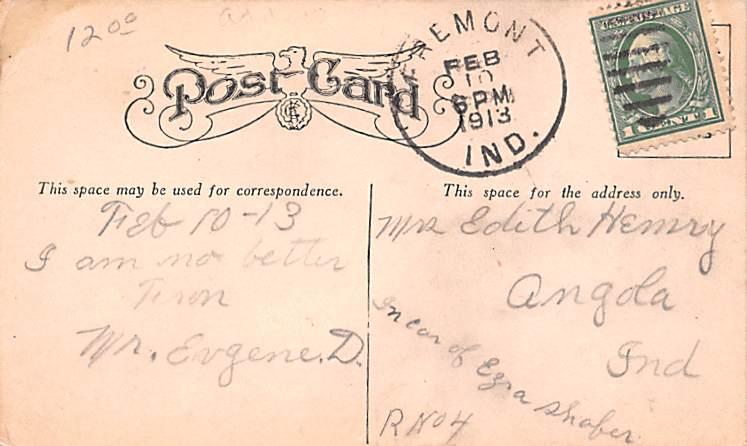 12 00
Post Card
FREMONT
FEB
10
6 PM
1913
IND.
1 CENT 1
This space may be used for correspondence.
Feb 10-13
I am no better
Mr. Evgene. D.
This space for the address only.
Mrs Edith Hemry
Angola
Ind
In car of Ezra Shafer
R No 4